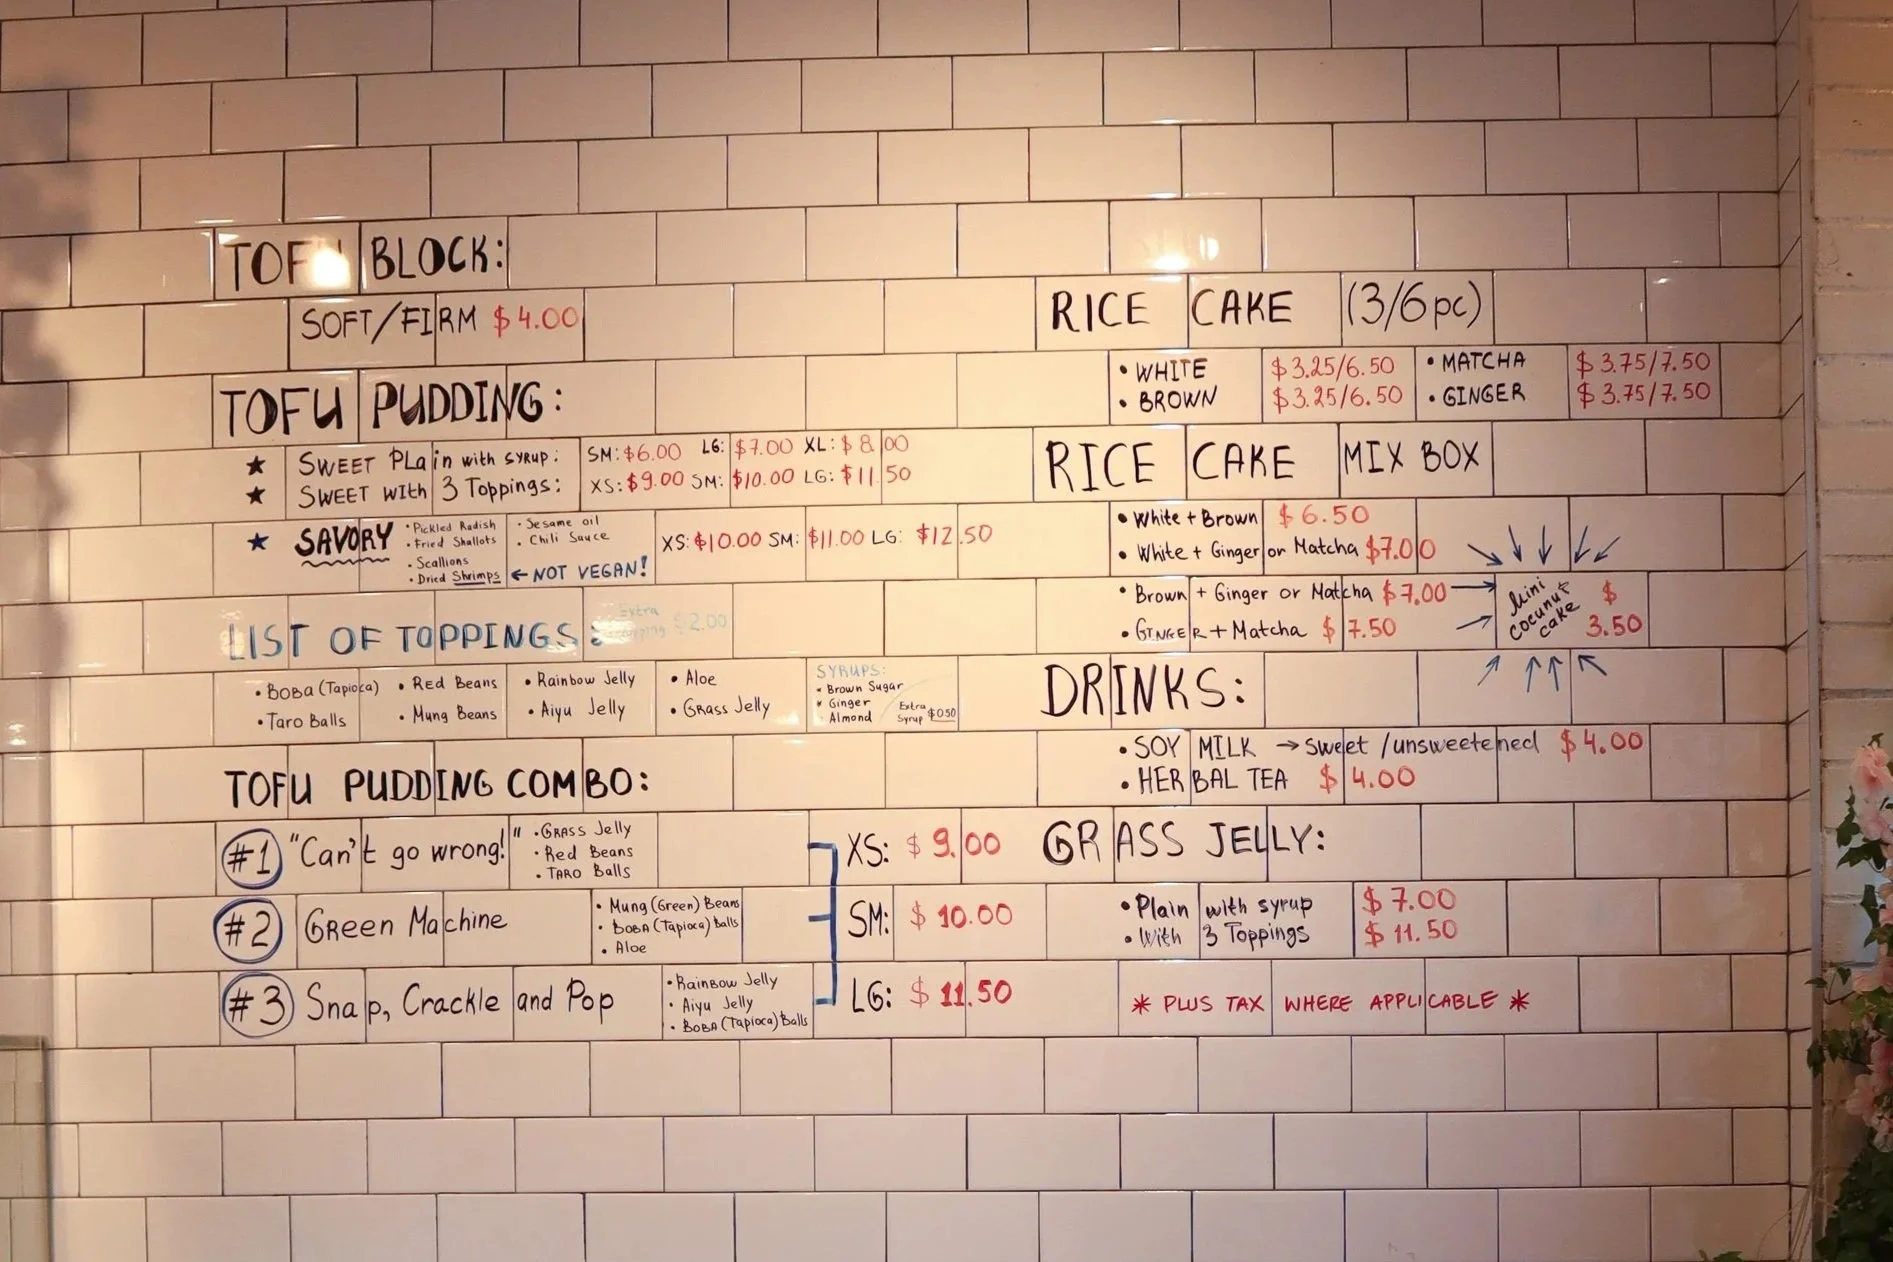 TOFU BLOCK:
SOFT/FIRM $4.00
TOFU PUDDING:
★ SWEET PLain with syrup: SM: $6.00 LG: $7.00 XL: $8.00
★ SWEET with 3 Toppings: XS: $9.00 SM: $10.00 LG: $11.50
★ SAVORY XS: $10.00 SM: $11.00 LG: $12.50
• Pickled Radish
• Fried Shallots
• Scallions
• Dried Shrimps ← NOT VEGAN!
• Sesame oil
• Chili Sauce
LIST OF TOPPINGS:
Extra
Topping $2.00
• BOBA (Tapioca) • RED Beans • Rainbow Jelly • Aloe
• Taro Balls • Mung Beans • Aiyu Jelly • GRASS Jelly
SYRUPS:
• Brown Sugar
• Ginger
Almond
Extra
Syrup $0.50
TOFU PUDDING COMBO:
#1 "Can't go wrong!"
• GRASS Jelly
• Red Beans
• TARO Balls
#2 GReen Machine
• Mung (Green) Beans
• BOBA (Tapioca) Balls
• Aloe
#3 Snap, Crackle and Pop
• Rainbow Jelly
• Aiyu Jelly
• BOBA (Tapioca) Balls
XS: $9.00
SM: $10.00
LG: $11.50
RICE CAKE (3/6pc)
• WHITE $3.25/6.50 • MATCHA $3.75/7.50
• BROWN $3.25/6.50 • GINGER $3.75/7.50
RICE CAKE MIX BOX
• White + Brown $6.50
• White + Ginger or Matcha $7.00
• Brown + Ginger or Matcha $7.00
• GINGER + Matcha $7.50
Mini
coconut
cake
$
3.50
DRINKS:
• SOY MILK → Sweet /unsweetened $4.00
• HERBAL TEA $4.00
GRASS JELLY:
• Plain with syrup $7.00
• With 3 Toppings $11.50
* PLUS TAX WHERE APPLICABLE *